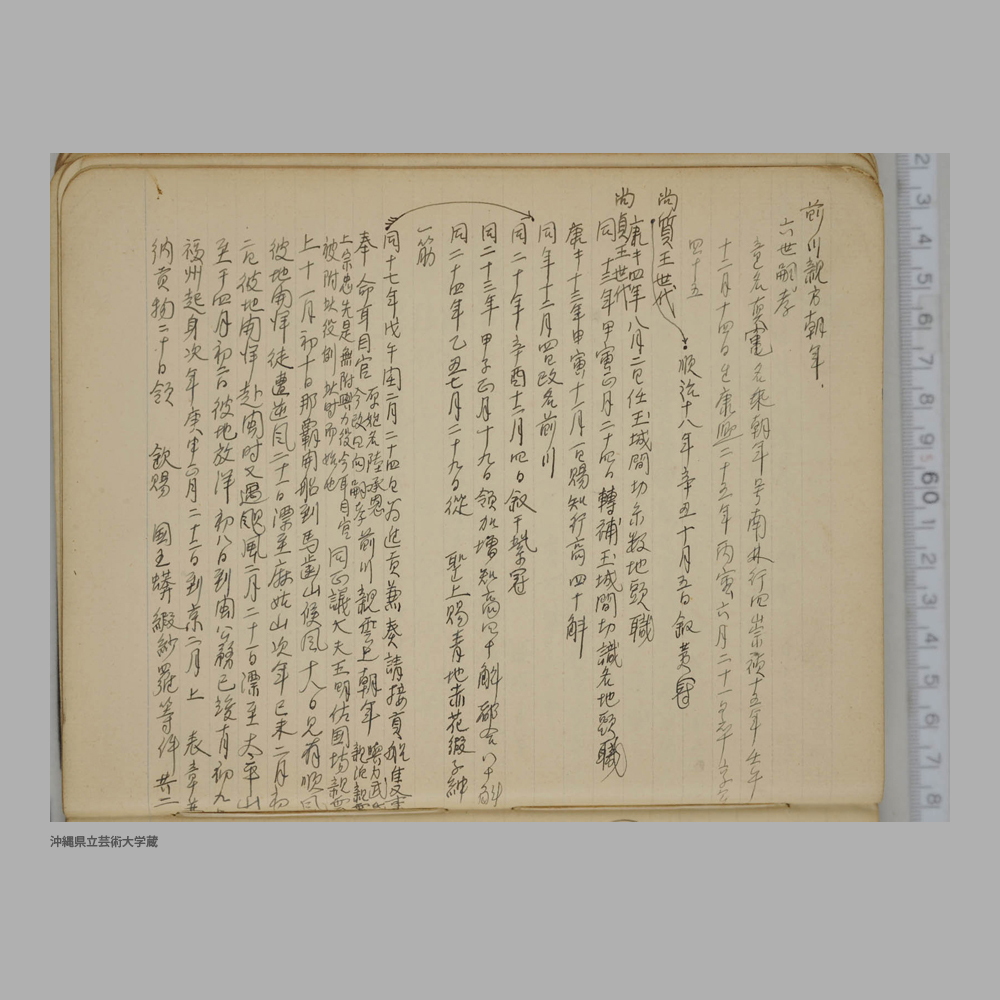 前川親方朝年.
六世嗣孝
童名真 名乗朝年号南林行四崇禎十五年壬午
十二月十四日生康熙二十五年丙寅六月二十一日
四十五
尚質王世代
順治十八年辛丑十月五日叙黄冠
尚貞王世代
康キ四年 八月二日任玉城間切糸数地頭職
同十三年甲寅正月二十四日轉補玉城間切識名地頭職
康キ十三年甲寅十二月一日賜知行高四十斛
同年十二月四日改名前川
同二十年辛酉十二月四日叙于紫冠
同二十三年甲子正月十九日領加増知高四十斛都合八十斛
同二十四年乙丑七月二十九日從 聖上賜青地赤花緞子紳
一筋
同十七年戊午閏二月二十四日為進貢兼奏請接貢船隻事
奉 命耳目官 原姓名陸承恩 今改曰向嗣孝 前川親雲上朝年
上崇忠先是無附與力役今耳目官
被附此役例此時而始也 同正議大夫王明佐国場親雲
上十一月初十日那覇開船到馬歯山候風十八日見有順風
彼地開洋徒遭逆風二十一日漂至麻姑山次年己未二月初
二日彼地開洋赴閩時又遇颶風二月二十一日漂至太平山
至于四月初二日彼地放洋初八日到閩公務已竣有初九
福州起身次年庚申正月二十二日到京二月上 表章并
納貢物二十日領 欽賜 國王蟒緞紗羅等件共二
沖縄県立芸術大学蔵